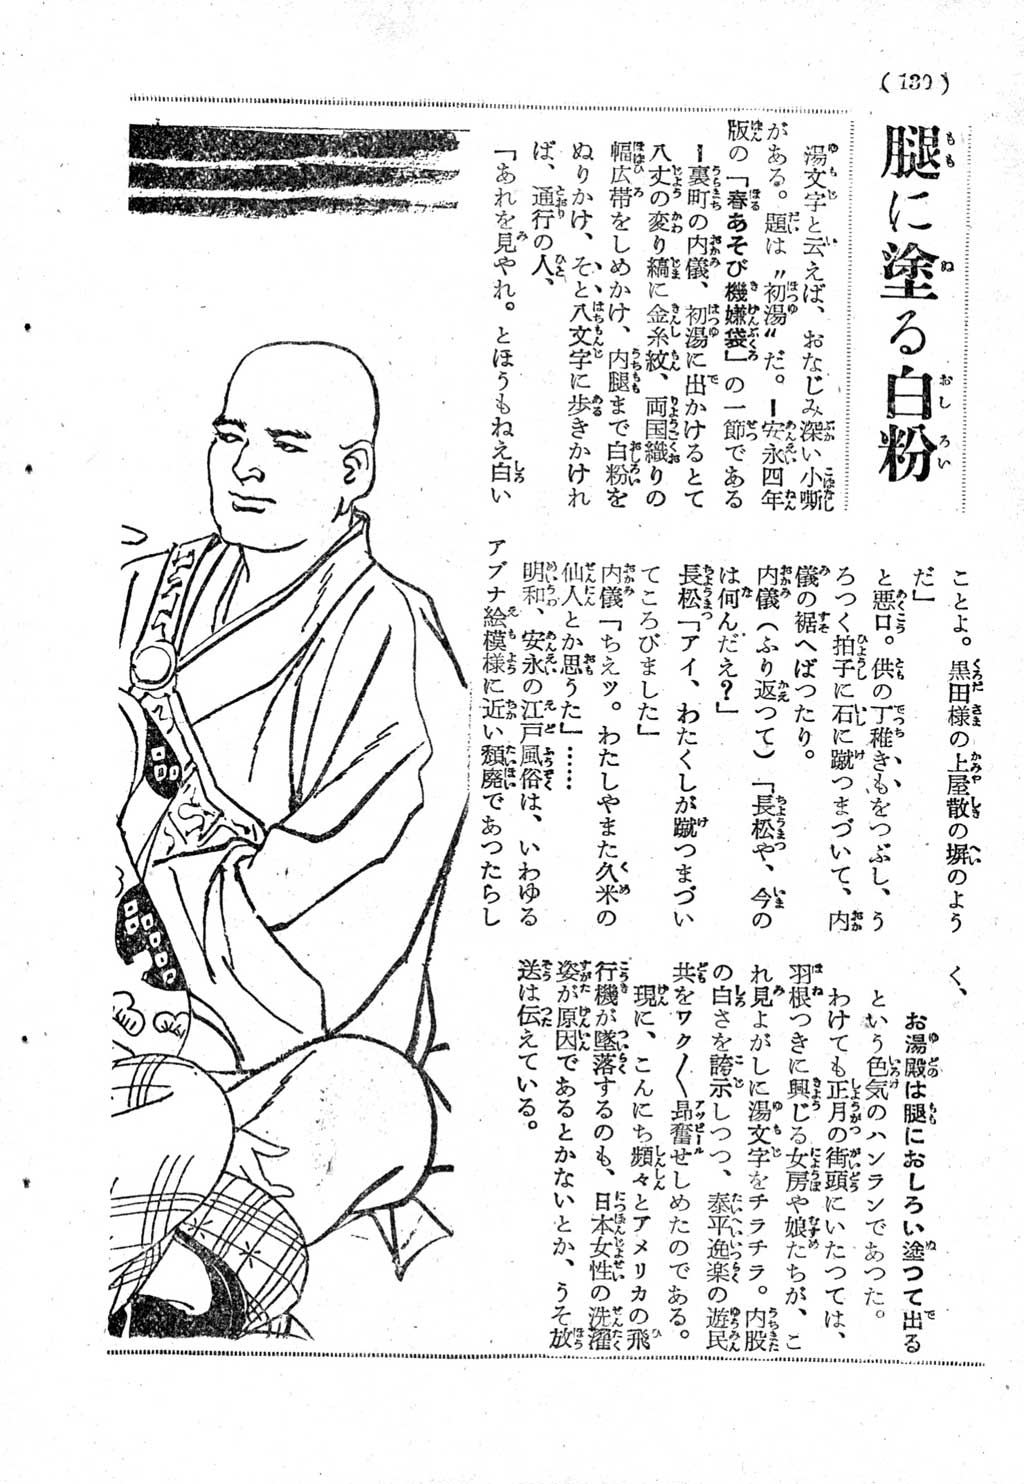 (130)
腿に塗る白粉
湯文字と云えば、おなじみ深い小噺
がある。題は〝初湯〟だ。ー安永四年
版の「春あそび機嫌袋」の一節である
ー裏町の内儀、初湯に出かけるとて
八丈の変り縞に金糸紋、両国織りの
幅広帯をしめかけ、内腿まで白粉を
ぬりかけ、そと八文字に歩きかけれ
ば、通行の人、
「あれを見やれ。とほうもねえ白い
ことよ。黒田様の上屋敷の塀のよう
だ」
と悪口。供の丁稚きもをつぶし、う
ろつく拍子に石に蹴つまづいて、内
儀の裾へばつたり。
内儀(ふり返つて)「長松や、今の
は何んだえ?」
長松「アイ、わたくしが蹴つまづい
てころびました」
内儀「ちえッ。わたしやまた久米の
仙人とか思うた」……
明和、安永の江戸風俗は、いわゆる
アブナ絵模様に近い頽廃であつたらし
く、
お湯殿は腿におしろい塗つて出る
という色気のハンランであつた。
わけても正月の街頭にいたつては、
羽根つきに興じる女房や娘たちが、こ
れ見よがしに湯文字をチラチラ。内股
の白さを誇示しつつ、泰平逸楽の遊民
共をワク〱昂奮せしめたのである。
現に、こんにち頻々とアメリカの飛
行機が墜落するのも、日本女性の洗濯
姿が原因であるとかないとか、うそ放
送は伝えている。